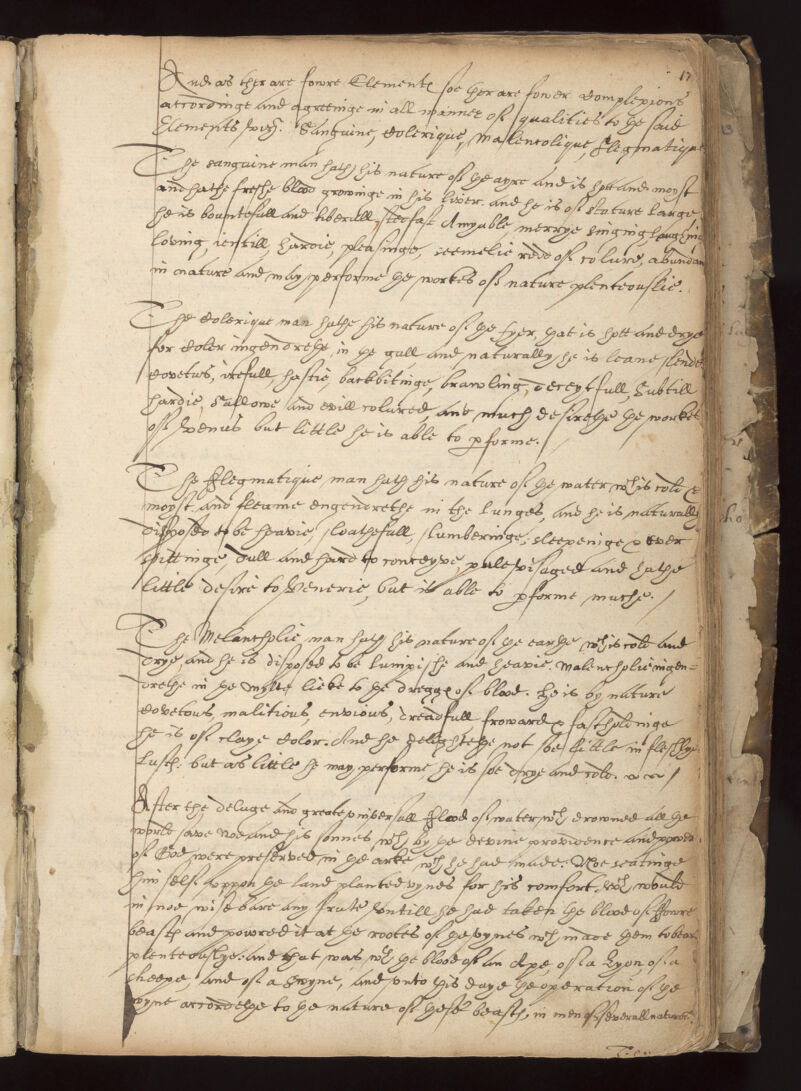 17
And as ther are fowre Elementes soe ther are fower Complexions
accordinge and agreeinge in all manner of qualities to the said
Elements vizt. Sanguine, Colerique, Malencolique, Flegmatique
The sanguine man hath his nature of the ayre and is hott and moyst
and hathe freshe blood growinge in his liver. and he is of stature large
he is bountefull and liberall, stedfast Amyable merrye singing, laughing
loving, ientill, hardie, pleasinge, seemelie redd of colure, abundan
in nature and may performe the workes of nature plenteouslie.
The Colerique man hathe his nature of the fyer, that is hott and drye
for Coler ingendrethe, in the gall and naturally he is leane slende
Covetus, irefull hastie, backbitinge, brawling, deceytfull, subtill
hardie, sallowe and evill colured and much desirethe the workes
of Venus but little he is able to pforme.
The Flegmatique man hath his nature of the water wch is cold &
moyst, and fleame engendrethe in the lunges, and he is naturally
disposed to be heavie, sloathefull, slumberinge, sleepenige & ever
spittinge, dull and hard to conceyve, pale visaged and hathe
little desire to Venerie, but is able to pforme muche.
The Melancholie man hath his nature of the earthe wch is cold and
drye, and he is disposed to be lumpishe and heavie, malencholie ingen=
drethe in the mylte like to the dregges of blood. he is by nature
Covetous, malitious, envious, dreadfull froward & fastholdinge
he is of claye Color. And he delightethe not soe little in fleshlye
Lusts. but as little he may performe he is soe drye and cold.
After the deluge and greate universall flood of water wch drowned all the
world save Noe and his sonnes, wch by the devine providence and power
of God were preserved in the arke wch he had made. Noe seatinge
him selfe uppon the land planted vynes for his comfort, wch would
in noe wise bare any frute untill he had taken the blood of fowre
beasts and powred it at the rootes of the vynes wch made them to bear
plenteouslye. and that was wth the blood of an Ape, of a Lyon of a
sheepe, and of a swyne, and unto this daye the operation of the
wyne accordethe to the nature of these beasts, in men of severall natures.